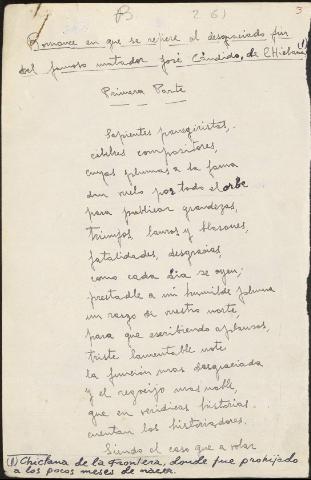 B 261 3
Romance en que se refiere el desgraciado fin
del famoso matador José Cándido, de Chiclana (1)
Primera Parte
Sapientes panegiristas,
célebres compositores,
cuyas plumas a la fama
dan vuelo por todo el orbe
para publicar grandezas,
triunfos, lauros y blasones,
fatalidades, desgracias,
como cada dia se oyen;
prestadle a mi humilde pluma
un rasgo de vuestro norte,
para que escribiendo aplausos,
triste lamentable note
la función mas desgraciada
y el regocijo mas noble
que en veridicas historias
cuentan los historiadores.
Siendo el caso que a volar
(1) Chiclana de la Frontera, donde fue prohijado
a los pocos meses de nacer.